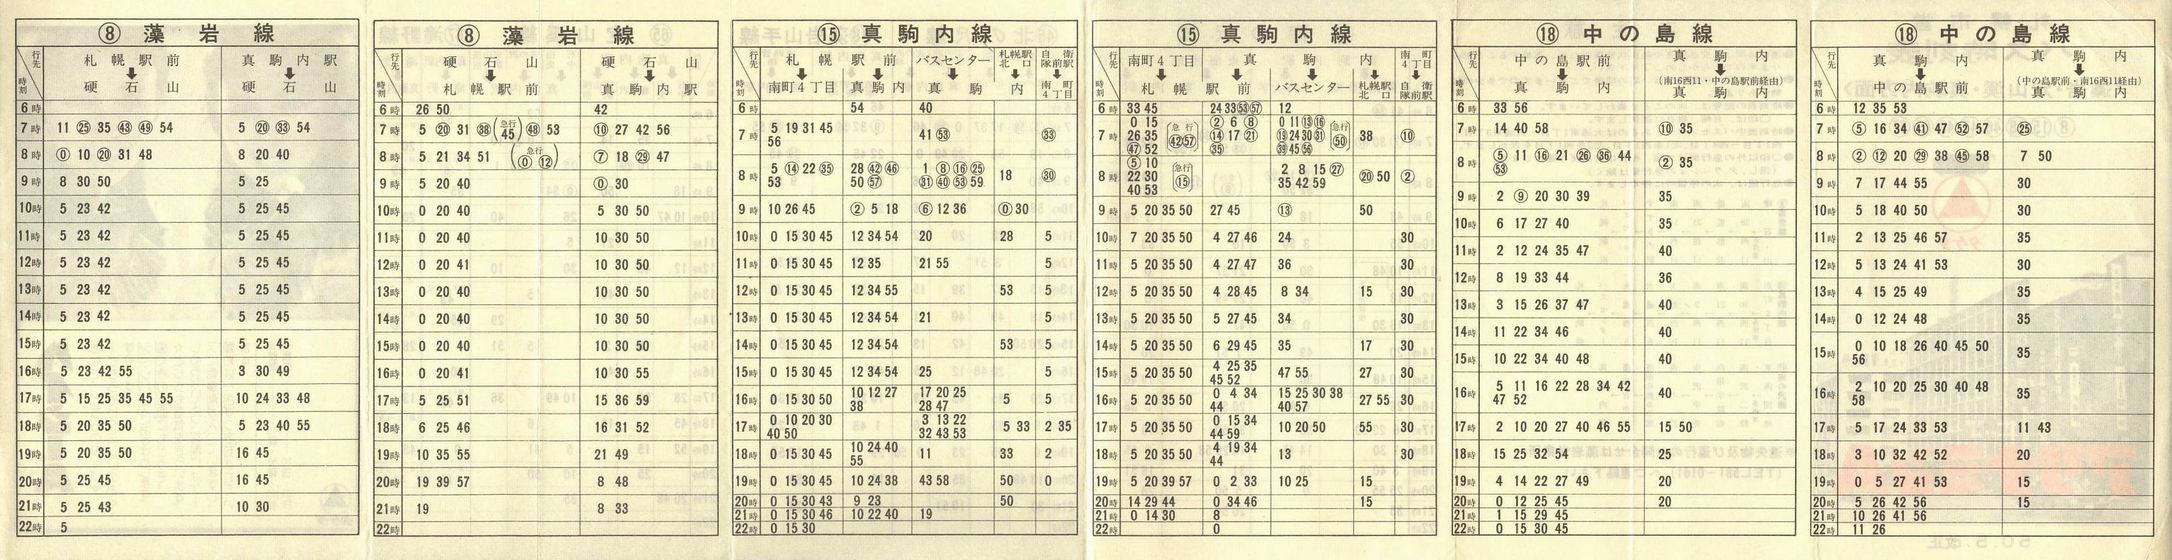 ⑧ 藻岩線
行先 時刻 札幌駅前 ↓ 硬石山 真駒内駅 ↓ 硬石山
6時
7時 11 ㉕ 35 ㊸ ㊾ 54 5 ⑳ ㉝ 54
8時 ⓪ 10 ⑳ 31 48 8 20 40
9時 8 30 50 5 25
10時 5 23 42 5 25 45
11時 5 23 42 5 25 45
12時 5 23 42 5 25 45
13時 5 23 42 5 25 45
14時 5 23 42 5 25 45
15時 5 23 42 5 25 45
16時 5 23 42 55 3 30 49
17時 5 15 25 35 45 55 10 24 33 48
18時 5 20 35 50 5 23 40 55
19時 5 20 35 50 16 45
20時 5 25 45 16 45
21時 5 25 43 10 30
22時 5
⑧ 藻岩線
行先 時刻 硬石山 ↓ 札幌駅前 硬石山 ↓ 真駒内駅
6時 26 50 42
7時 5 ⑳ 31 ㊳ (急行 45) ㊽ 53 ⑩ 27 42 56
8時 5 21 34 51 (急行 ⓪ ⑫) ⑦ 18 ㉙ 47
9時 5 20 40 ⓪ 30
10時 0 20 40 5 30 50
11時 0 20 40 10 30 50
12時 0 20 41 10 30 50
13時 0 20 40 10 30 50
14時 0 20 40 10 30 50
15時 0 20 40 10 30 50
16時 0 20 41 10 30 55
17時 5 25 51 15 36 59
18時 6 25 46 16 31 52
19時 10 35 55 21 49
20時 19 39 57 8 48
21時 19 8 33
22時
⑮ 真駒内線
行先 時刻 札幌駅前 ↓ 南町4丁目 バスセンター ↓ 真駒内 札幌駅北口 自衛隊駅前 ↓ 南町4丁目
6時 54 40
7時 5 19 31 45 56 41 53 ㉝
8時 5 ⑭ 22 ㉟ 53 28 ㊷ ㊻ 50 57 1 ⑧ ⑯ ㉕ ㉛ ㊵ 53 59 18 ㉚
9時 10 26 45 ② 5 18 ⑥ 12 36 ⓪ 30
10時 0 15 30 45 12 34 54 20 28 5
11時 0 15 30 45 12 35 21 55 5
12時 0 15 30 45 12 34 55 53 5
13時 0 15 30 45 12 34 54 21 5
14時 0 15 30 45 12 34 54 53 5
15時 0 15 30 45 12 34 54 25 5
16時 0 15 30 50 10 12 27 38 17 20 25 28 47 5 5
17時 0 10 20 30 40 50 3 13 22 32 43 53 5 33 2 35
18時 0 15 30 45 10 24 40 55 11 33 2
19時 0 15 30 45 10 24 38 43 58 50 0
20時 0 15 30 43 9 23 50
21時 0 15 30 46 10 22 40 19
22時 0 15 30
⑮ 真駒内線
行先 時刻 南町4丁目 ↓ 札幌駅前 真駒内 ↓ バスセンター 札幌駅北口 南町4丁目 ↓ 自衛隊前駅
6時 33 45 24 33 53 57 12
7時 0 15 26 35 ㊼ 52 (急行 ㊷ 57) ② 6 ⑧ ⑭ 17 ㉑ ㉟ 0 11 ⑬ ⑯ 24 30 ㉛ 45 (急行 ㊿) 38 ⑩
8時 ⑤ 10 22 30 40 53 (急行 ⑮) 2 8 15 ㉗ 35 42 59 ⑳ 50 ②
9時 5 20 35 50 27 45 ⑬ 50
10時 7 20 35 50 4 27 46 24 30
11時 5 20 35 50 4 27 47 36 30
12時 5 20 35 50 4 28 45 8 34 15 30
13時 5 20 35 50 5 27 45 34 30
14時 5 20 35 50 6 29 45 35 17 30
15時 5 20 35 50 4 25 35 45 52 47 55 27 30
16時 5 20 35 50 0 4 34 44 15 25 30 38 40 57 27 55 30
17時 5 20 35 50 0 15 34 44 59 10 20 50 55 30
18時 5 20 35 50 4 19 34 44 13 30
19時 5 20 39 57 0 2 33 10 25 15
20時 14 29 44 0 34 46 15
21時 0 14 30 8
22時 0
⑱ 中の島線
行先 時刻 真駒内 中の島駅前 ↓ 真駒内 真駒内 ↓ (南16西11・中の島駅前経由) 真駒内
6時 33 56
7時 14 40 58 ⑩ 35
8時 ⑤ 11 ⑯ 21 ㉖ ㊱ 44 53 ② 35
9時 2 ⑨ 20 30 39 35
10時 6 17 27 40 35
11時 2 12 24 35 47 40
12時 8 19 33 44 36
13時 3 15 26 37 47 40
14時 11 22 34 46 40
15時 10 22 34 40 48 40
16時 5 11 16 22 28 34 42 47 52 40
17時 2 10 20 27 40 46 55 15 50
18時 15 25 32 54 25
19時 4 14 22 27 49 20
20時 0 12 25 45 20
21時 1 15 29 45
22時 0 15 30 45
⑱ 中の島線
行先 時刻 真駒内 ↓ 中の島駅前 真駒内 ↓ (中の島駅前・南16西11経由) 真駒内
6時 12 35 53
7時 ⑤ 16 34 ㊶ 47 52 57 ㉕
8時 ② ⑫ 20 ㉙ 38 ㊺ 58 7 50
9時 7 17 44 55 30
10時 5 18 40 50 30
11時 2 13 25 46 57 35
12時 5 13 24 41 53 30
13時 4 15 25 49 35
14時 0 12 24 48 35
15時 0 10 18 26 40 45 50 56 35
16時 2 10 20 25 30 40 48 58 35
17時 5 17 24 33 53 11 43
18時 3 10 32 42 52 20
19時 0 5 27 41 53 15
20時 5 26 42 56 15
21時 10 26 41 56
22時 11 26